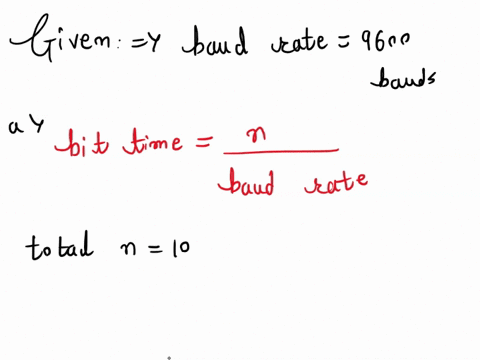 Given: => baud rate = 9600
bauds
a> bit time = n / baud rate
total n = 10